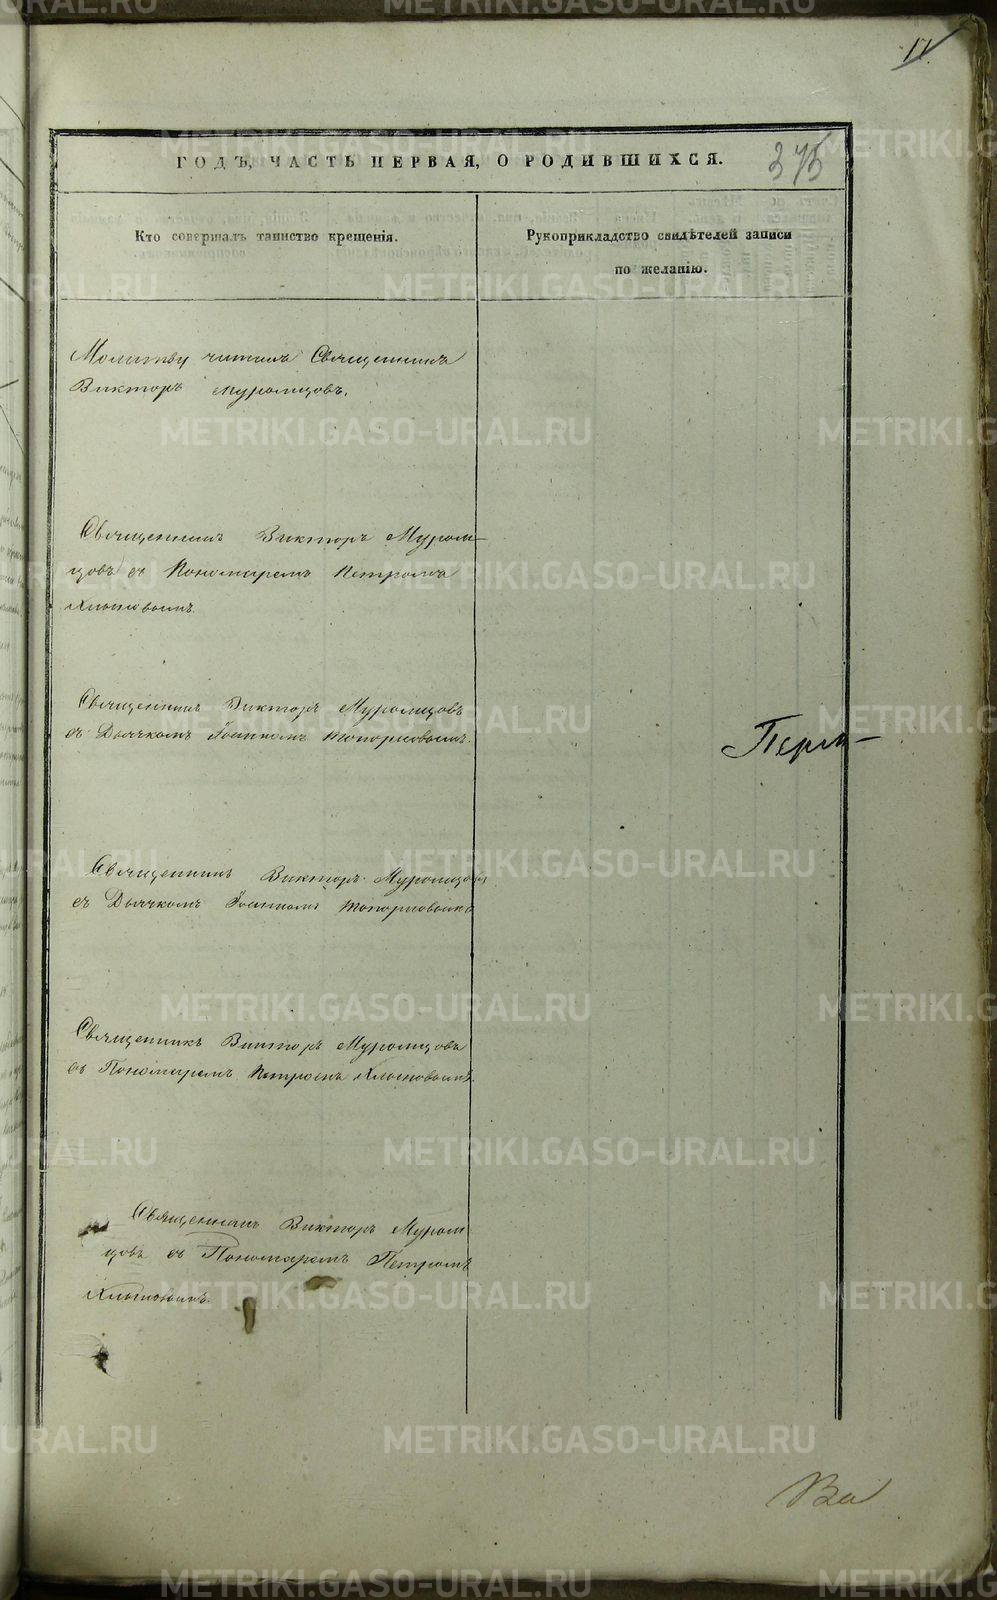 11.
ГОДЪ, ЧАСТЬ ПЕРВАЯ, О РОДИВШИХСЯ.
375
Кто совершалъ таинство крещенія.
Рукоприкладство свидѣтелей записи
по желанію.
Молитву читалъ Священникъ
Викторъ Муромцовъ.
Священникъ Викторъ Муром-
цовъ съ Пономаремъ Петромъ
Хлыновымъ.
Священникъ Викторъ Муромцовъ
съ Дьячкомъ Іоанномъ Топорковымъ.
Перм-
Священникъ Викторъ Муромцовъ
съ Дьячкомъ Іоанномъ Топорковымъ
Священникъ Викторъ Муромцовъ
съ Пономаремъ Петромъ Хлыновымъ.
Священникъ Викторъ Муром
цовъ съ Пономаремъ Петромъ
Хлыновымъ.
METRIKI.GASO-URAL.RU